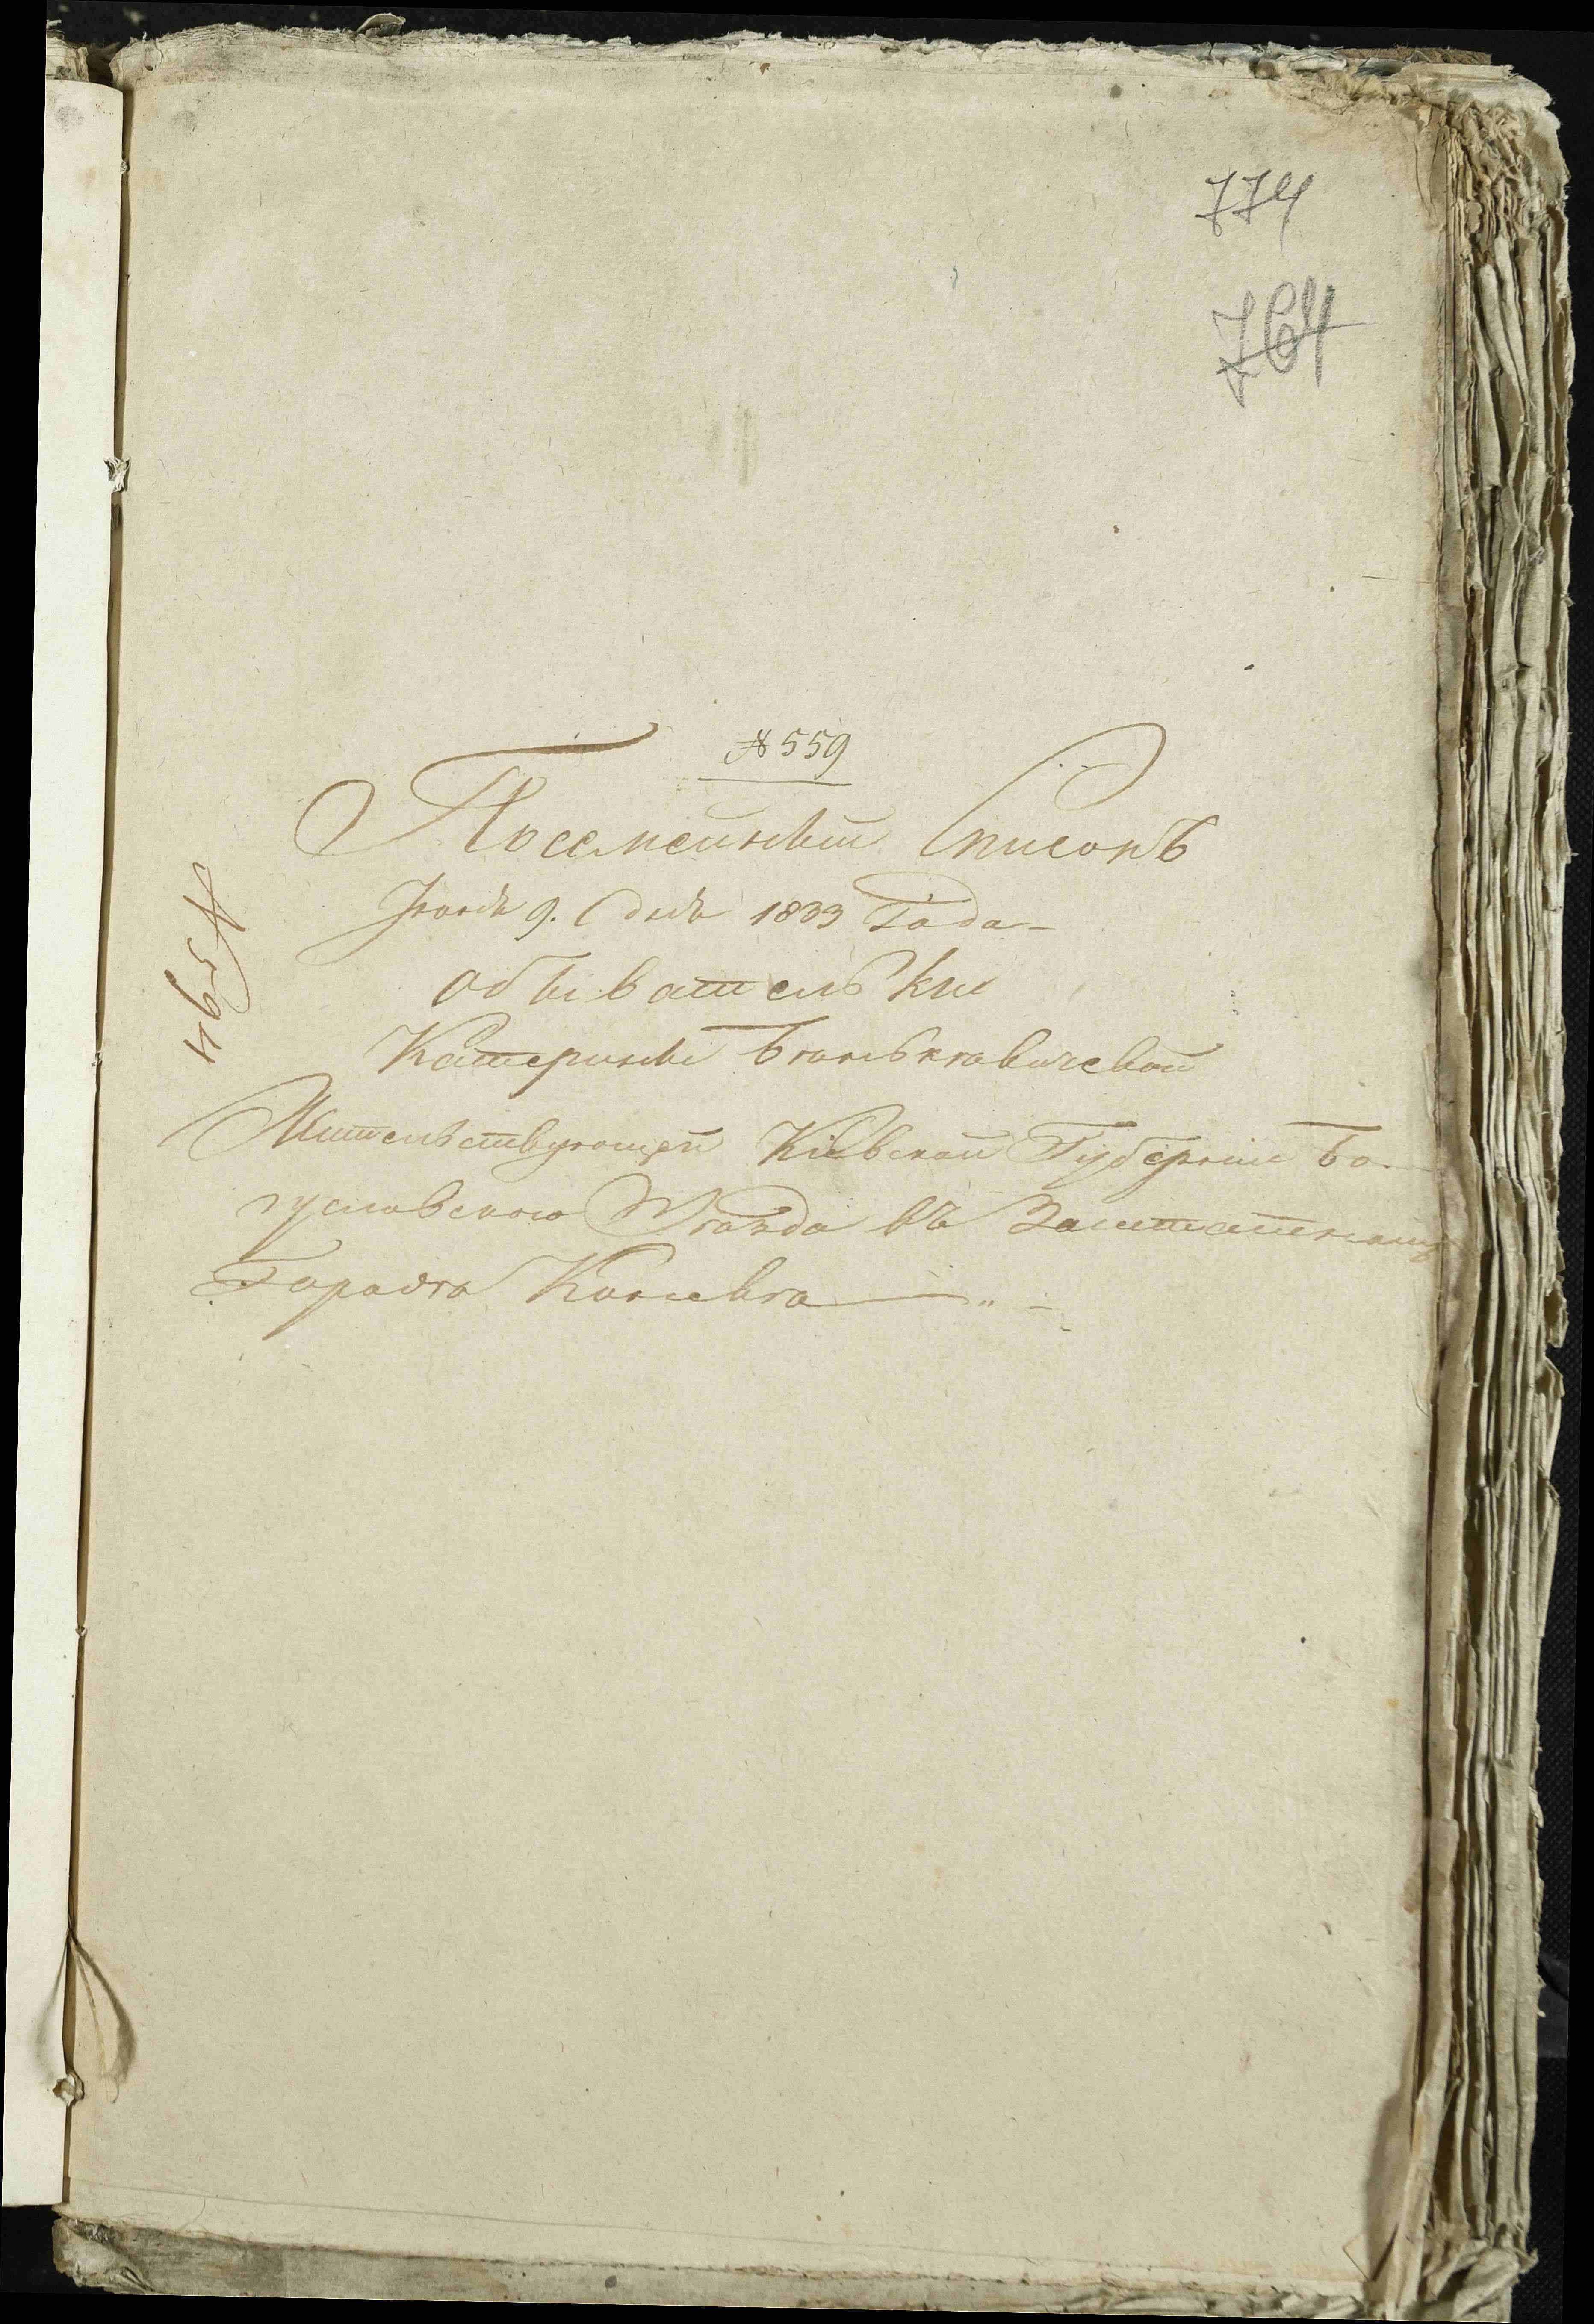 774
764
№ 559
Посемейный Списокъ
Июня 9. Дня 1833 Года
обывательки
Катерины Бѣньковичевой
Жительствующей Кіевской Губерніи Бо-
гуславского Уѣзда въ Заштатномъ
Городѣ Каневѣ